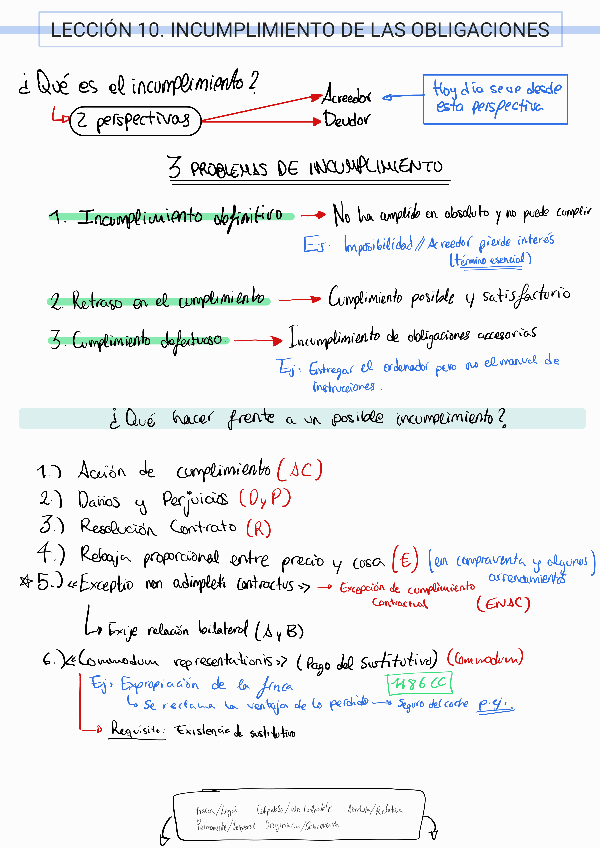 LECCIÓN 10. INCUMPLIMIENTO DE LAS OBLIGACIONES
¿Qué es el incumplimiento?
2 perspectivas
Acreedor
Deudor
Hoy día se ve desde
esta perspectiva
3 PROBLEMAS DE INCUMPLIMIENTO
1. Incumplimiento definitivo → No ha cumplido en absoluto y no puede cumplir
Ej: Imposibilidad // Acreedor pierde interés
(término esencial)
2. Retraso en el cumplimiento → Cumplimiento posible y satisfactorio
3. Cumplimiento defectuoso → Incumplimiento de obligaciones accesorias
Ej: Entregar el ordenador pero no el manual de
instrucciones.
¿Qué hacer frente a un posible incumplimiento?
1.) Acción de cumplimiento (AC)
2.) Daños y Perjuicios (DyP)
3.) Resolución Contrato (R)
4.) Rebaja proporcional entre precio y cosa (E) (en compraventa y algunos)
arrendamientos
5.) «Exceptio non adimpleti contractus» → Excepción de cumplimiento
Contractual (ENAC)
Exije relación bilateral (A y B)
6.) «Commodum representationis» (Pago del Sustitutivo) (Commodum)
Ej: Expropiación de la finca 1186 CC
Se reclama la ventaja de lo perdido → Seguro del coche p.ej.
Requisito: Existencia de sustitutivo
Física/Legal Culpable/No Culpable Absoluta/Relativa
Permanente/Temporal Originaria/Sobrevenida